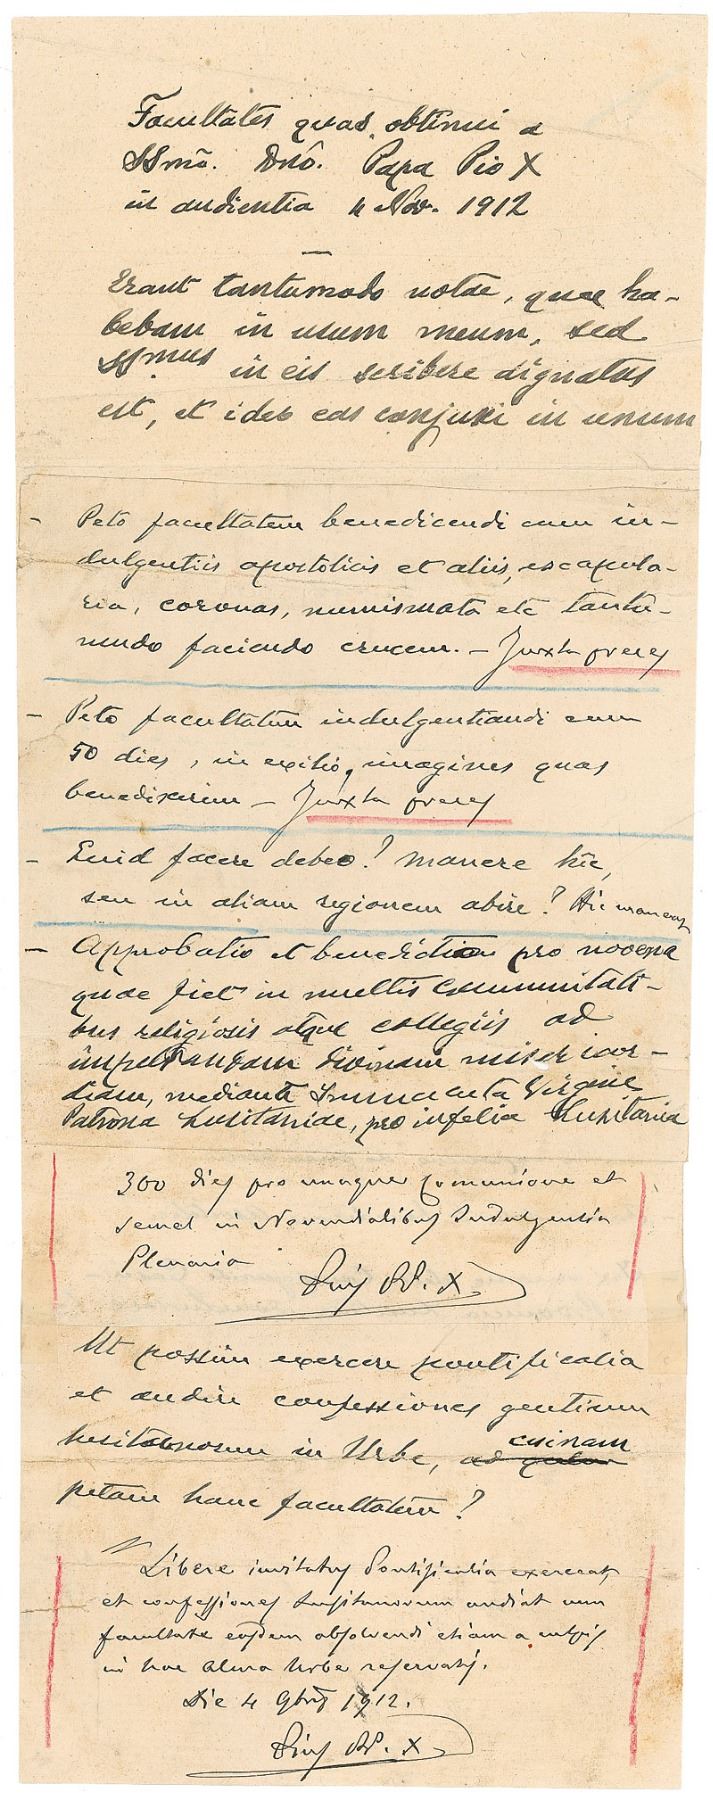 Facultates quas obtinui a
SSmo. Dnô. Papa Pio X
in audientia 4 Nov. 1912
—
Erant tantummodo notae, quae ha-
bebam in usum meum, sed
SSmus in eis scribere dignatus
est, et ideo eas conjuxi in unum
- Peto facultatem benedicendi cum in-
dulgentiis apostolicis et aliis, escapula-
ria, coronas, numismata etc tantu-
mmdo faciendo crucem. - Juxta preces
- Peto facultatem indulgentiandi cum
50 dies, in exilio, imagines quas
benedixerim - Juxta preces
- Quid facere debeo? manere hic,
seu in aliam regionem abire? Hic maneas
- Approbatio et benediction pro novena
quae fiet in multis communitati-
bus religiosis atque collegiis ad
impetrandam divinam misericor-
diam, mediante Immaculata Virgine
Patrona Lusitaniae, pro infelici Lusitania
300 dies pro unaquae Comunione et
semel in Novendialibus Indulgentia
Plenaria
Pius PP. X
Ut possim exercere pontificalia
et audire confessiones gentium
lusitanorum in Urbe, cuinam
petam hanc facultatem?
Libere invitatus Pontificalia exerceat,
et confessiones Lusitanorum audiat cum
facultate eosdem absolvendi etiam a culpis
in hac alma Urbe reservatis.
Die 4 9bris 1912.
Pius PP. X